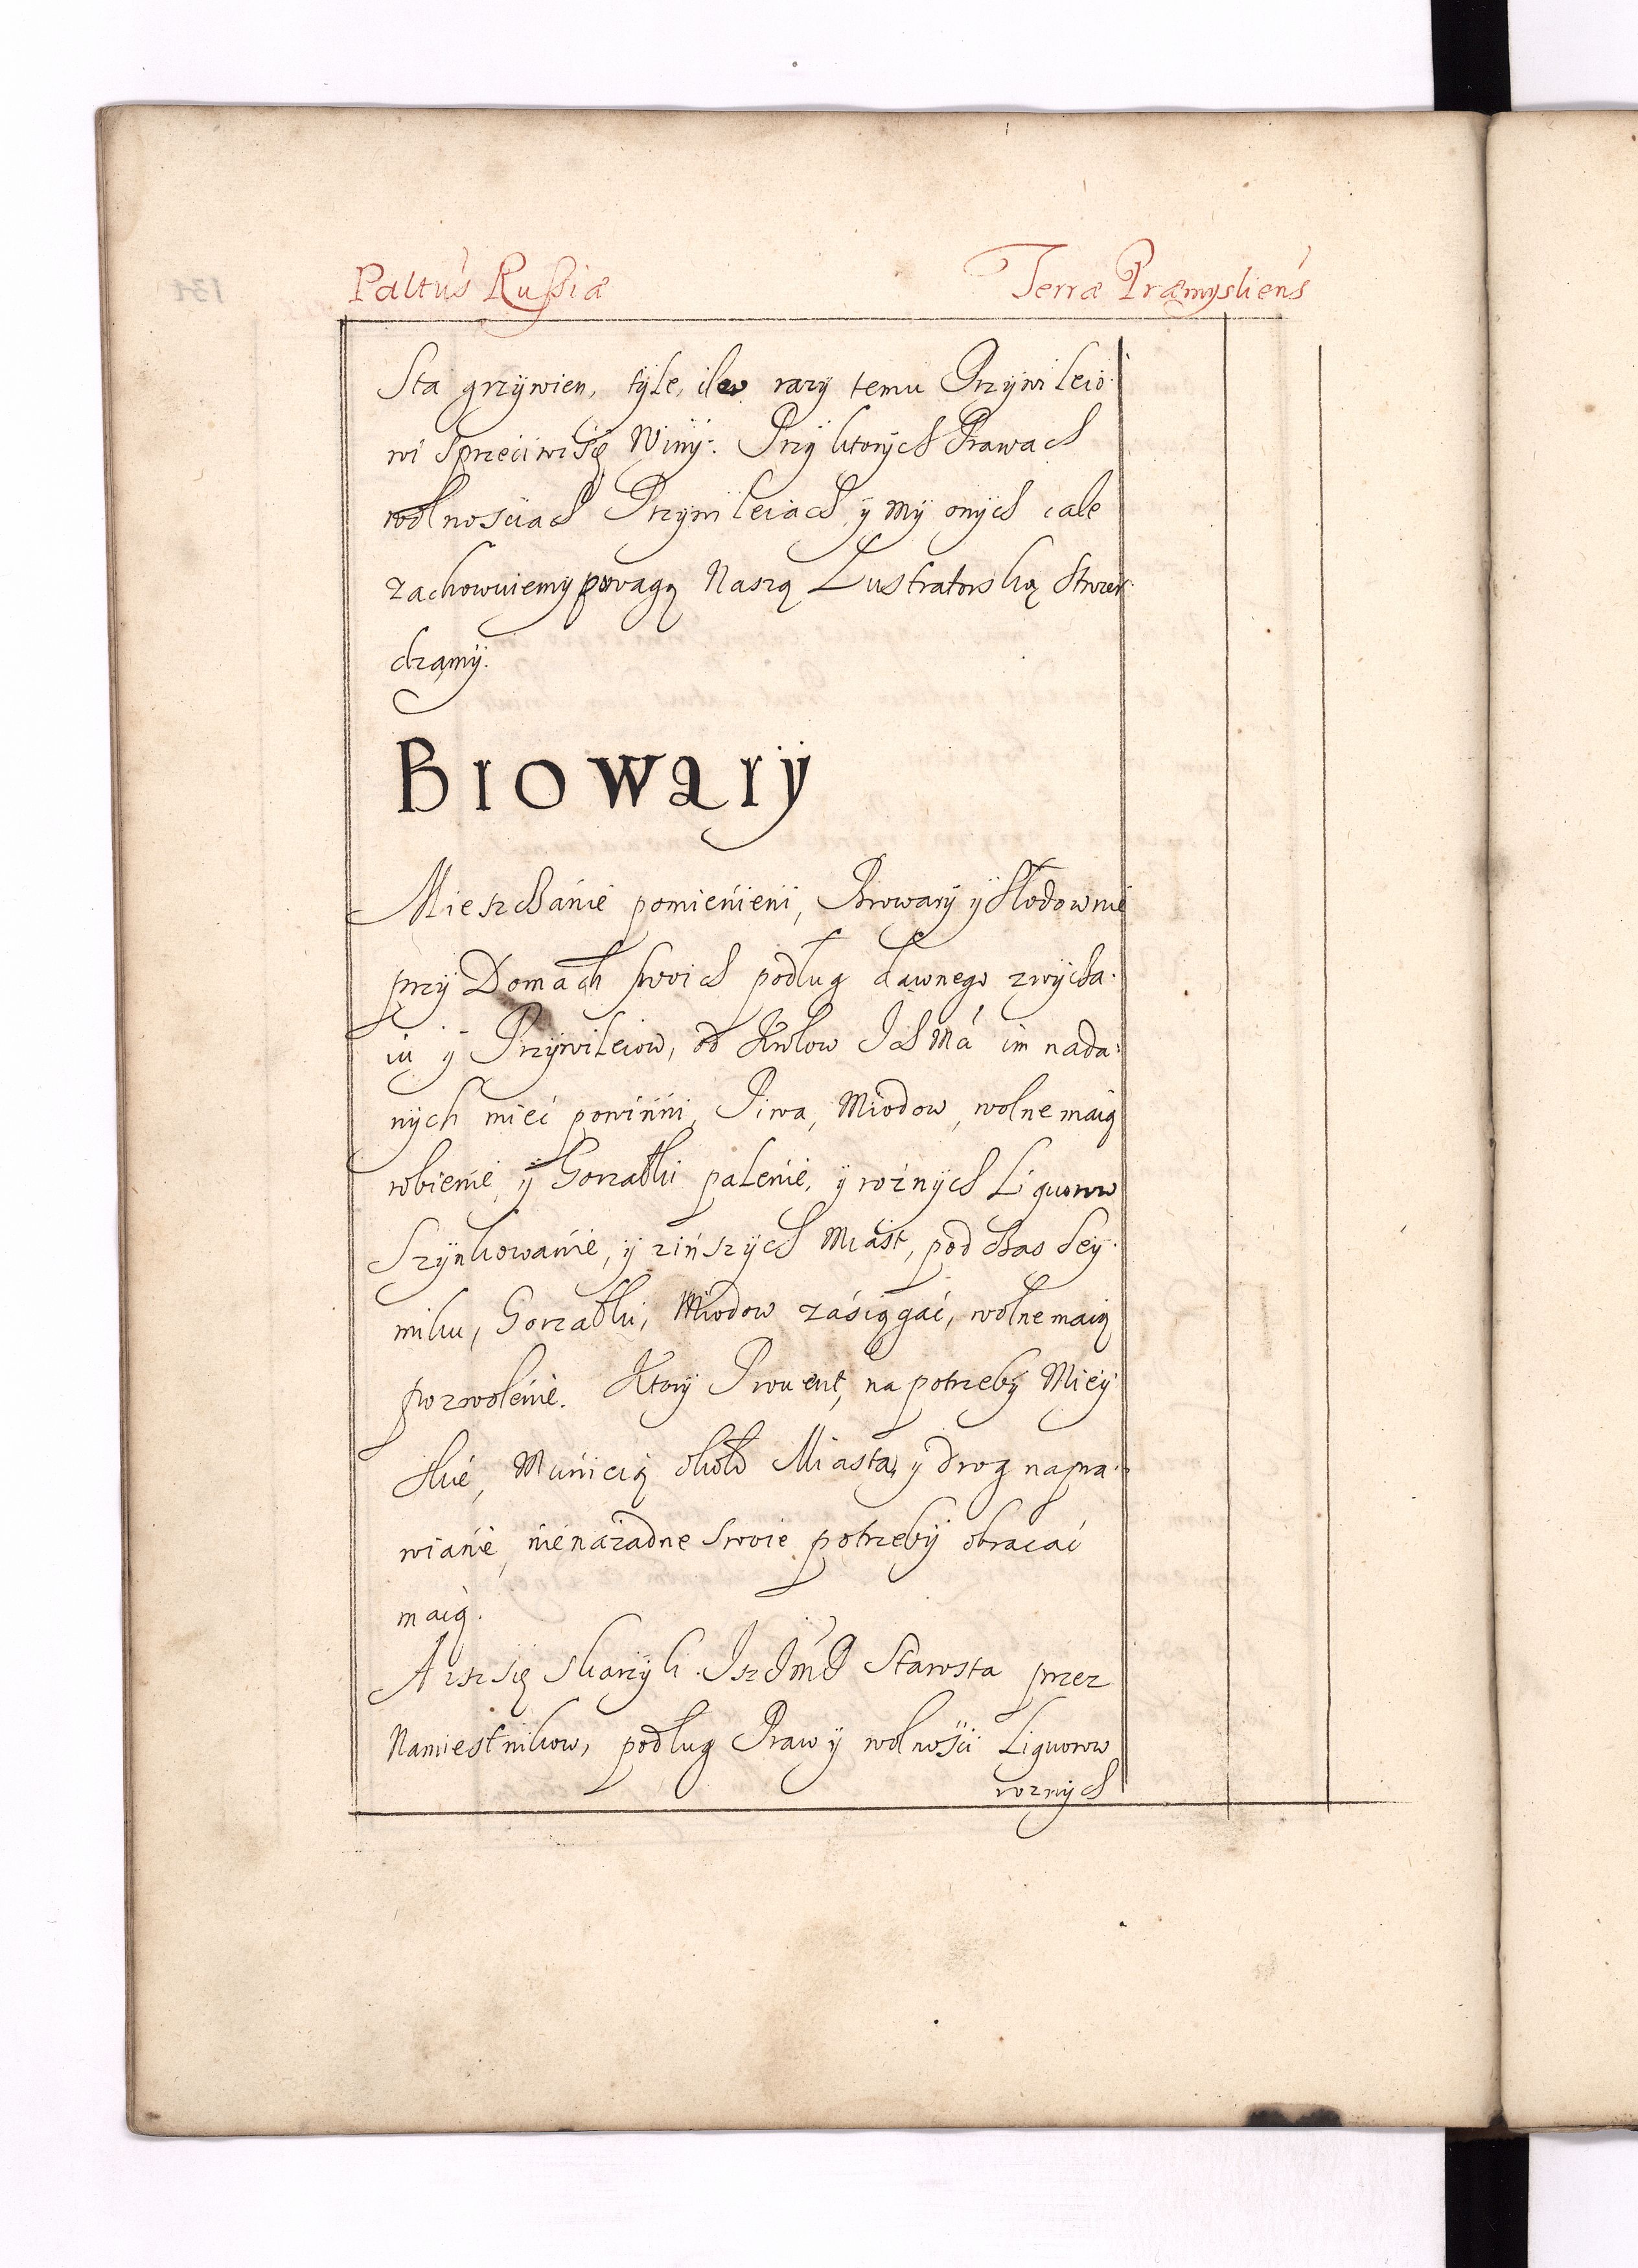 Paltus Rußiæ Terræ Præmysliens
Sta grzywien, tyle, ile razy temu Przywileio-
wi sprzeciwi się Winy: Przy ktorych Prawach
wolnosciach Przywileiach, y my onych cale
zachowuiemy powagą Naszą Lustratorską stwier-
dzamy.
Browary
Mieszczanie pomienieni, Browary y Słodownie
przy Domach swoich podług dawnego zwycza-
iu y Przywileiow, od Krolow Ich Mći im nada-
nych mieć powinni, Piwa, Miodow, wolne maią
robienie, y Gorzałki palenie, y roznych Liquorow
Szynkowanie, y z inszych Miast, pod czas Sey-
miku, Gorzałki, Miodow zasięgać, wolne maią
pozwolenie. Ktory Prouent, na potrzeby Miey-
skie, Municią około Miasta, y drog napra-
wianie, nie na zadne swoie potrzeby obracać
maią.
A isz się skarzyli Isz Starosta przez
Namiestnikow, podług Praw y wolności Liquorow
roznych